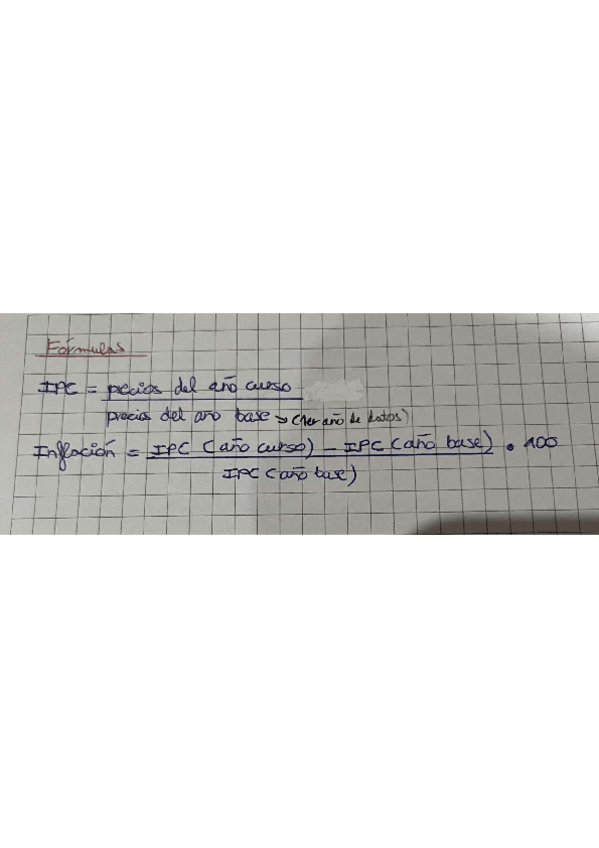 Fórmulas
IPC = precios del año curso
precios del ano base → (1er año de datos)
Inflación = IPC (año curso) - IPC (año base) • 100
IPC (año base)